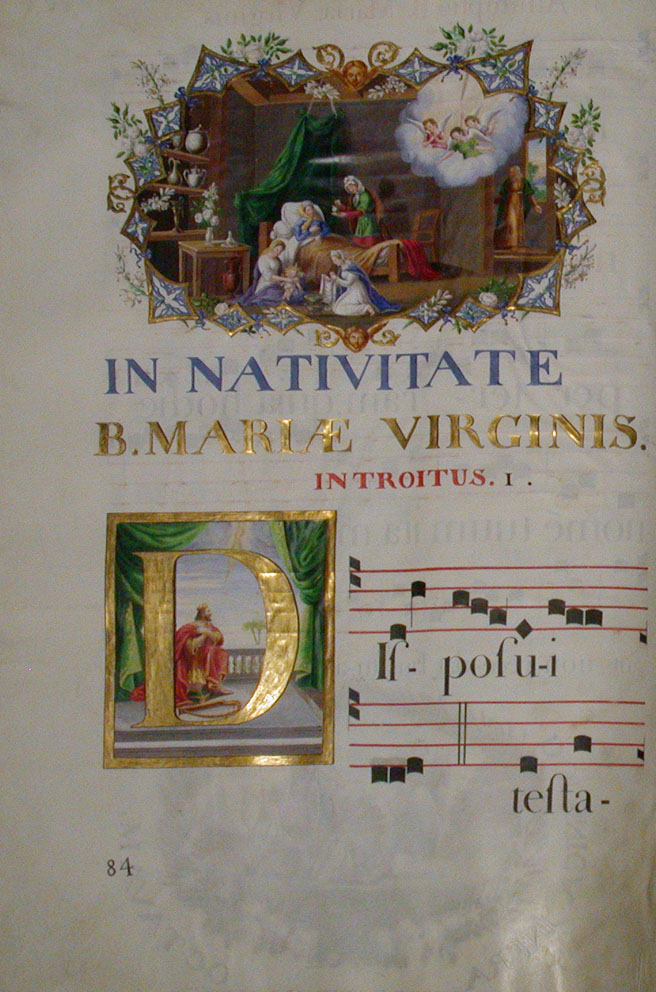 IN NATIVITATE
B. MARIÆ VIRGINIS.
INTROITUS. 1.
DIſ- poſu-i
teſta-
84